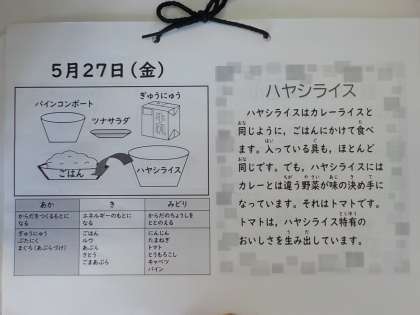 5月27日(金)
パインコンポート
ツナサラダ
ぎゅうにゅう
牛乳
ごはん
ハヤシライス
あか
き
みどり
からだをつくるもとに
なる
エネルギーのもとに
なる
からだのちょうしを
ととのえる
ぎゅうにゅう
ぶたにく
まぐろ(あぶらづけ)
ごはん
ルウ
あぶら
さとう
ごまあぶら
にんじん
たまねぎ
トマト
とうもろこし
キャベツ
パイン
ハヤシライス
ハヤシライスはカレーライスと
同じように,ごはんにかけて食べ
ます。入っている具も,ほとんど
同じです。でも,ハヤシライスには
カレーとは違う野菜が味の決め手に
なっています。それはトマトです。
トマトは,ハヤシライス特有の
おいしさを生み出しています。